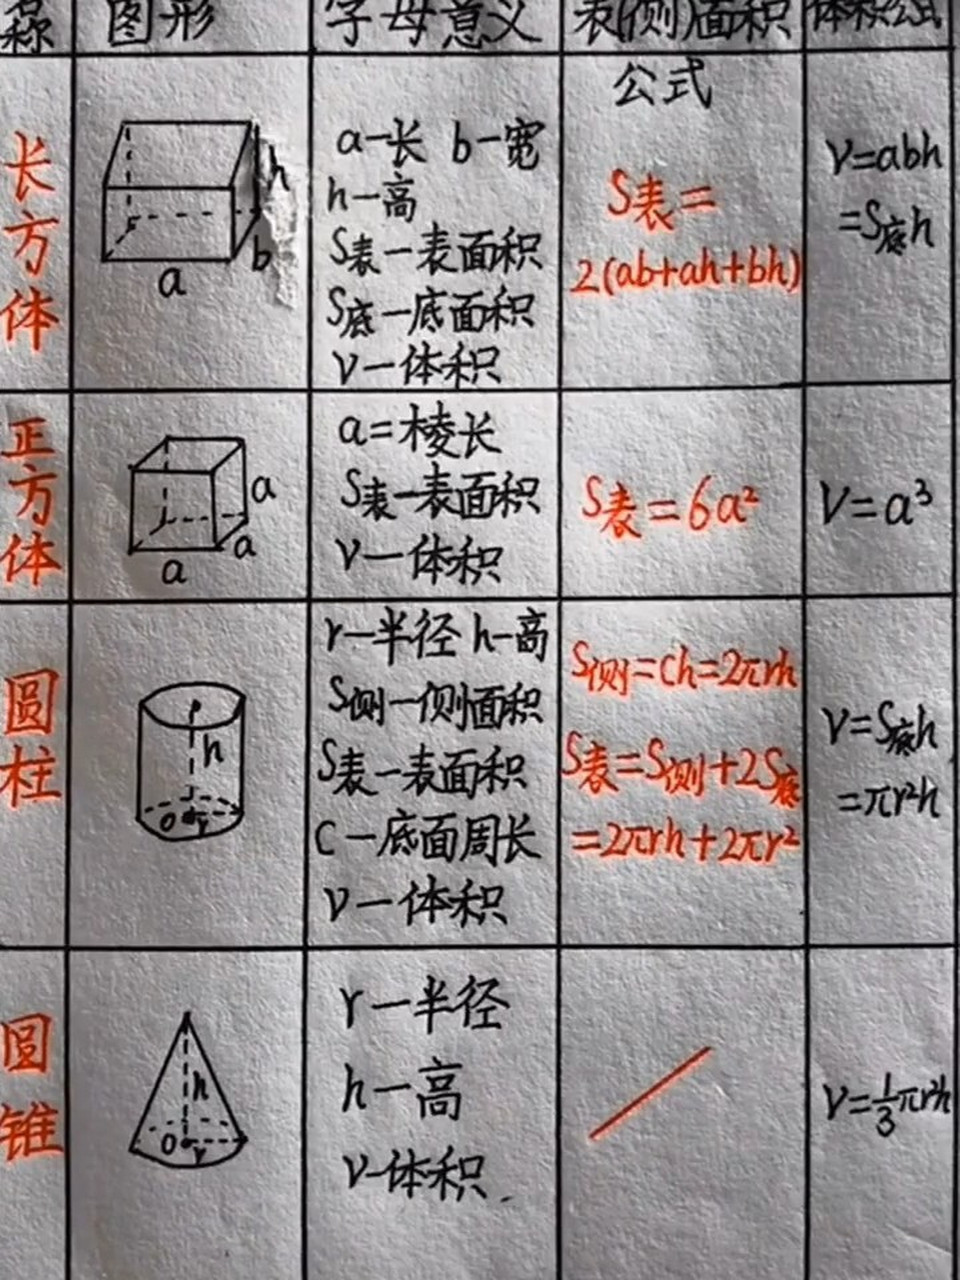 名称
图形
字母意义
表(侧)面积
公式
体积公式
长方体
h
b
a
a-长 b-宽
h-高
S表-表面积
S底-底面积
V-体积
S表=
2(ab+ah+bh)
V=abh
=S底h
正方体
a
a
a
a=棱长
S表-表面积
V-体积
S表=6a²
V=a³
圆柱
h
o r
r-半径 h-高
S侧-侧面积
S表-表面积
C-底面周长
V-体积
S侧=Ch=2πrh
S表=S侧+2S底
=2πrh+2πr²
V=S底h
=πr²h
圆锥
h
o r
r-半径
h-高
V-体积
V=1/3πr²h